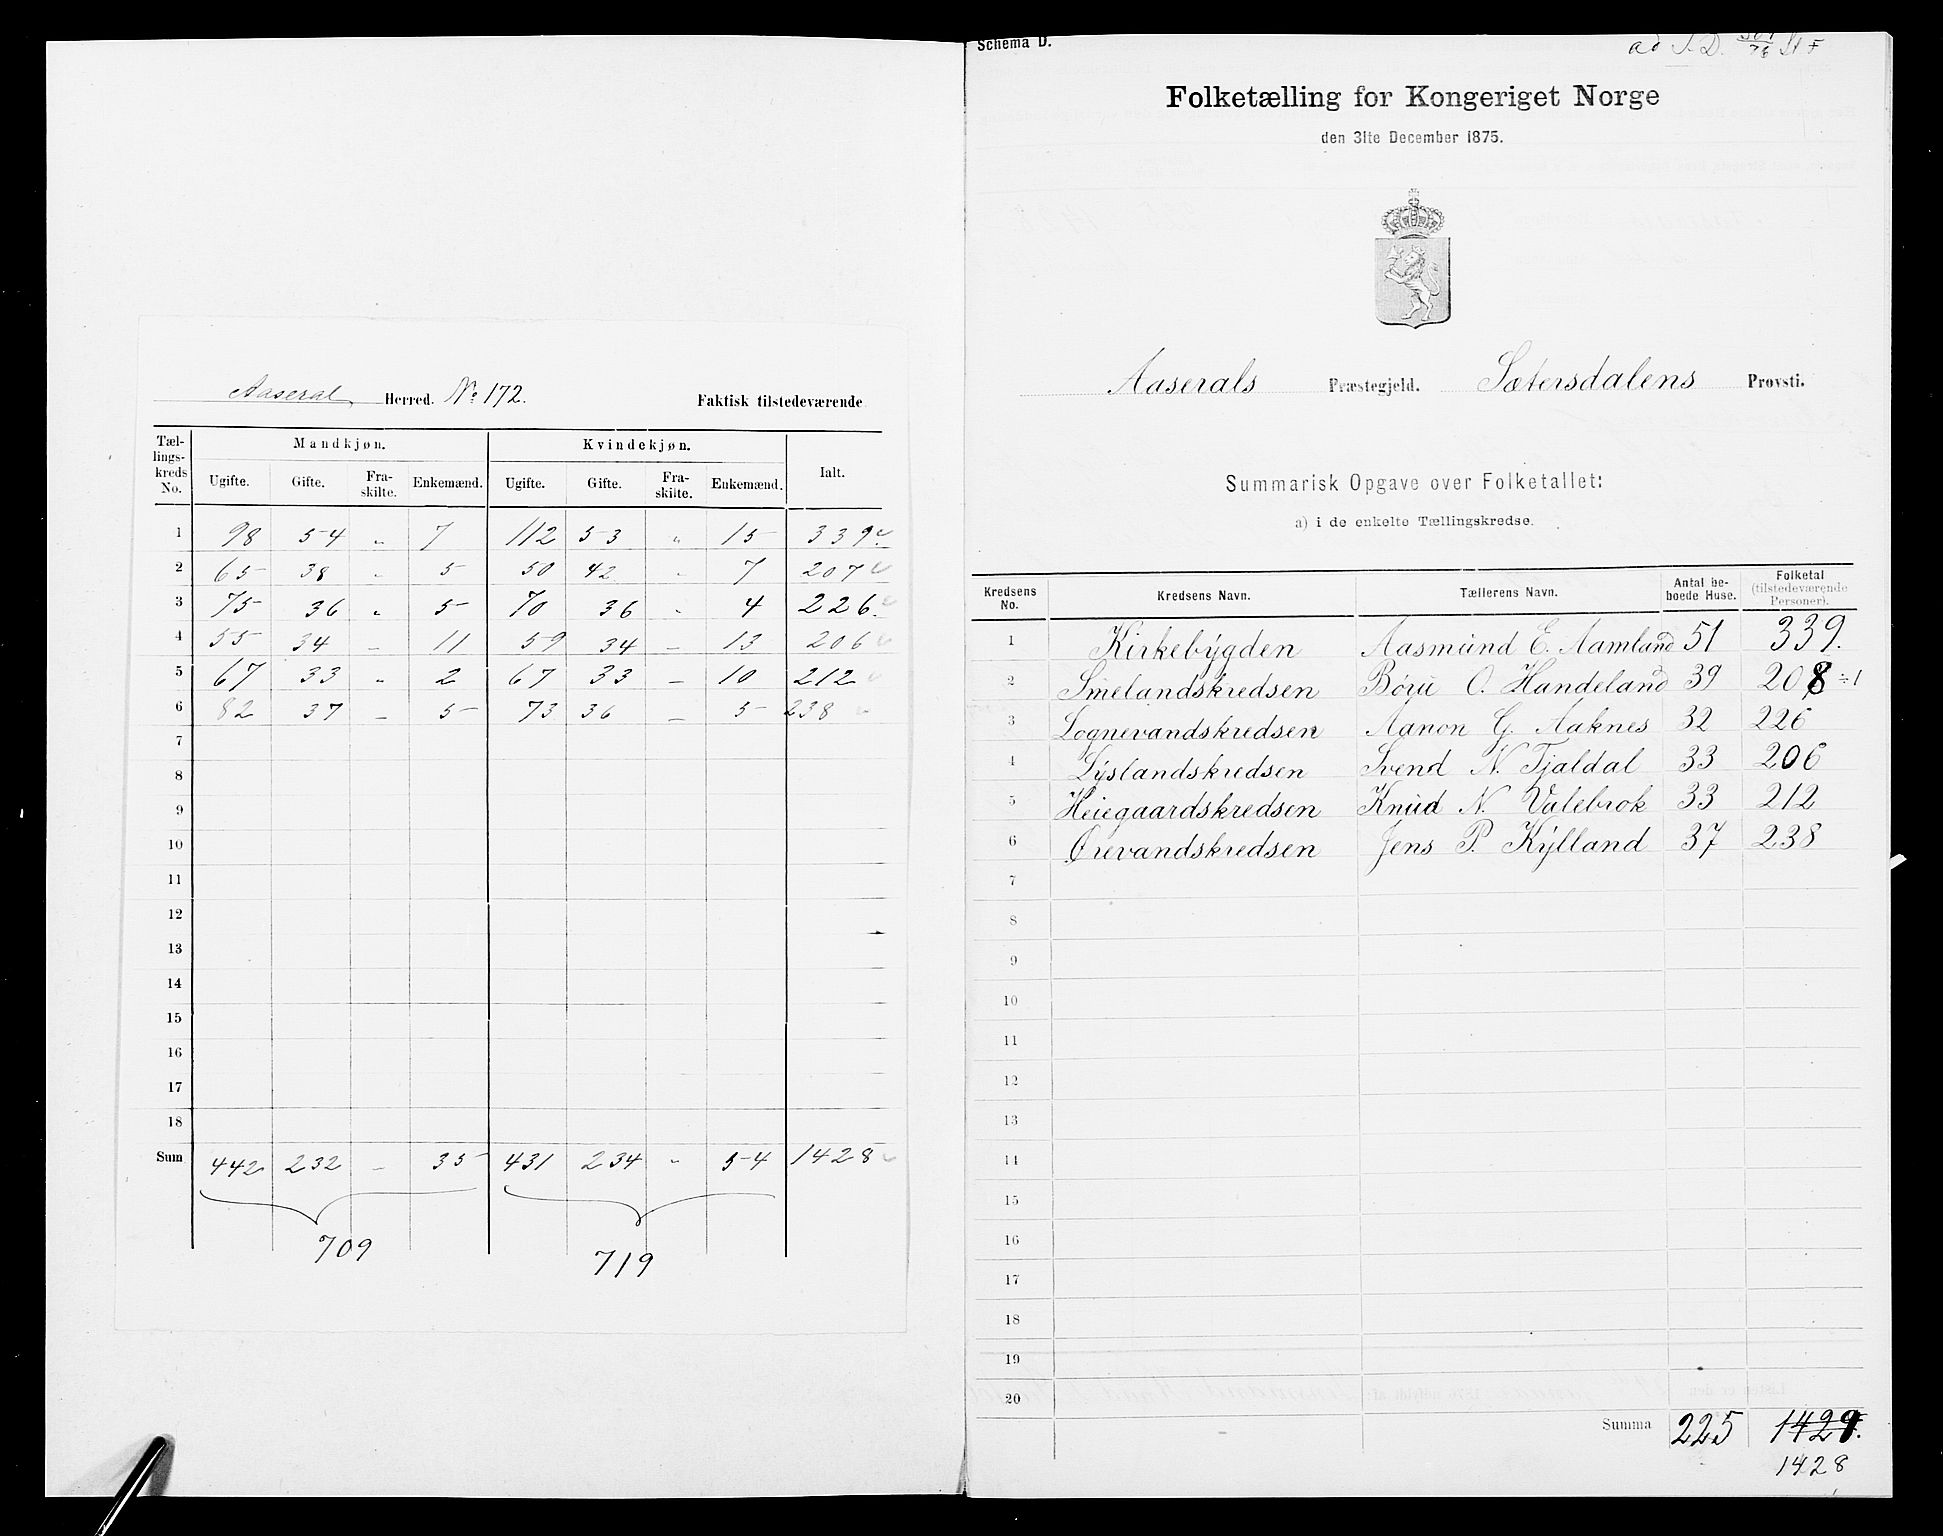 Aaseral Herred. No 172. Faktisk tilstedeværende
Tællingskreds No. Mandkjøn. Kvindekjøn. Ialt.
Ugifte. Gifte. Fraskilte. Enkemænd. Ugifte. Gifte. Fraskilte. Enkemænd.
1 98 54 „ 7 112 53 „ 15 339
2 65 38 „ 5 50 42 „ 7 207
3 75 36 „ 5 70 36 „ 4 226
4 55 34 – 11 59 34 – 13 206
5 67 33 „ 2 67 33 – 10 212
6 82 37 – 5 73 36 – 5 238
7
8
9
10
11
12
13
14
15
16
17
18
Sum 442 232 – 35 431 234 „ 54 1428
709 719
Schema D.
Folketælling for Kongeriget Norge
den 31te December 1875.
Aaserals Præstegjeld. Sætersdalens Provsti.
Summarisk Opgave over Folketallet:
a) i de enkelte Tællingskredse.
Kredsens No. Kredsens Navn. Tællerens Navn. Antal beboede Huse. Folketal (tilstedeværende Personer).
1 Kirkebygden Aasmund E. Aamland 51 339.
2 Smelandskredsen Børu O. Handeland 39 208 ÷1
3 Lognevandskredsen Aanon G. Aaknes 32 226
4 Lyslandskredsen Svend N. Tjaldal 33 206
5 Heiegaardskredsen Knud N. Valebrok 33 212
6 Ørevandskredsen Jens P. Kylland 37 238
7
8
9
10
11
12
13
14
15
16
17
18
19
20
Summa 225 1429.
1428